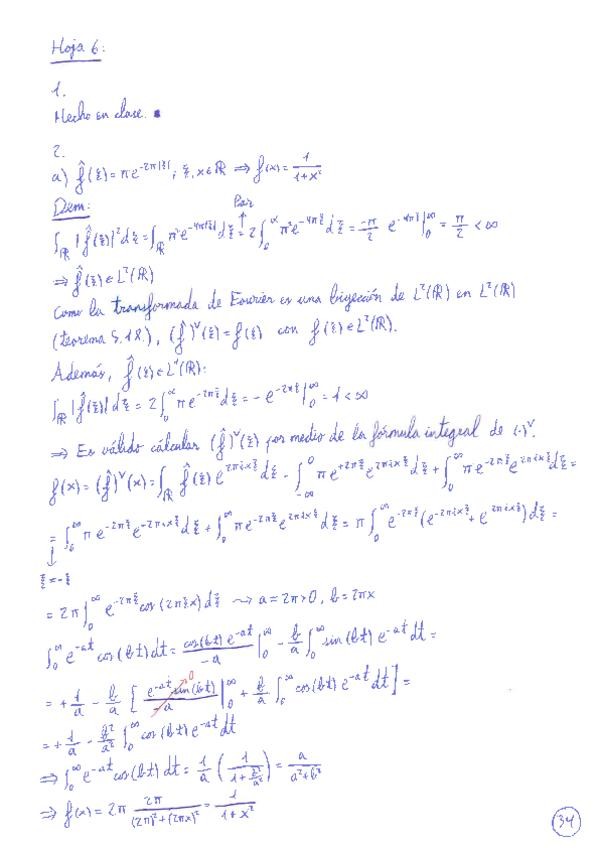 Hoja 6:
1.
Hecho en clase. ▪
2.
a) f̂(ξ) = πe^{-2π|ξ|}; ξ, x ∈ ℝ ⇒ f(x) = 1/(1+x²)
Dem:
Par
∫_ℝ |f̂(ξ)|² dξ = ∫_ℝ π² e^{-4π|ξ|} dξ = 2∫_0^∞ π² e^{-4πξ} dξ = -π/2 e^{-4πξ}|_0^∞ = π/2 < ∞
⇒ f̂(ξ) ∈ L²(ℝ)
Como la transformada de Fourier es una biyección de L²(ℝ) en L²(ℝ)
(teorema 5.18.), (f̂)^∨(ξ) = f(ξ) con f(ξ) ∈ L²(ℝ).
Además, f̂(ξ) ∈ L¹(ℝ):
∫_ℝ |f̂(ξ)| dξ = 2∫_0^∞ πe^{-2πξ} dξ = -e^{-2πξ}|_0^∞ = 1 < ∞
⇒ Es válido cálcular (f̂)^∨(ξ) por medio de la fórmula integral de (·)^∨.
f(x) = (f̂)^∨(x) = ∫_ℝ f̂(ξ) e^{2πixξ} dξ = ∫_{-∞}^0 πe^{+2πξ} e^{2πixξ} dξ + ∫_0^∞ πe^{-2πξ} e^{2πixξ} dξ =
= ∫_0^∞ πe^{-2πξ} e^{-2πixξ} dξ + ∫_0^∞ πe^{-2πξ} e^{2πixξ} dξ = π∫_0^∞ e^{-2πξ}(e^{-2πixξ} + e^{2πixξ}) dξ =
ξ = -ξ
= 2π∫_0^∞ e^{-2πξ} cos(2πξx) dξ ⇝ a = 2π > 0, b = 2πx
∫_0^∞ e^{-at} cos(bt) dt = cos(bt) e^{-at}/-a |_0^∞ - b/a ∫_0^∞ sin(bt) e^{-at} dt =
= +1/a - b/a [ e^{-at} sin(bt)/-a |_0^∞ + b/a ∫_0^∞ cos(bt) e^{-at} dt ] =
0
= +1/a - b²/a² ∫_0^∞ cos(bt) e^{-at} dt
⇒ ∫_0^∞ e^{-at} cos(bt) dt = 1/a (1/(1+b²/a²)) = a/(a²+b²)
⇒ f(x) = 2π 2π/((2π)²+(2πx)²) = 1/(1+x²)
34